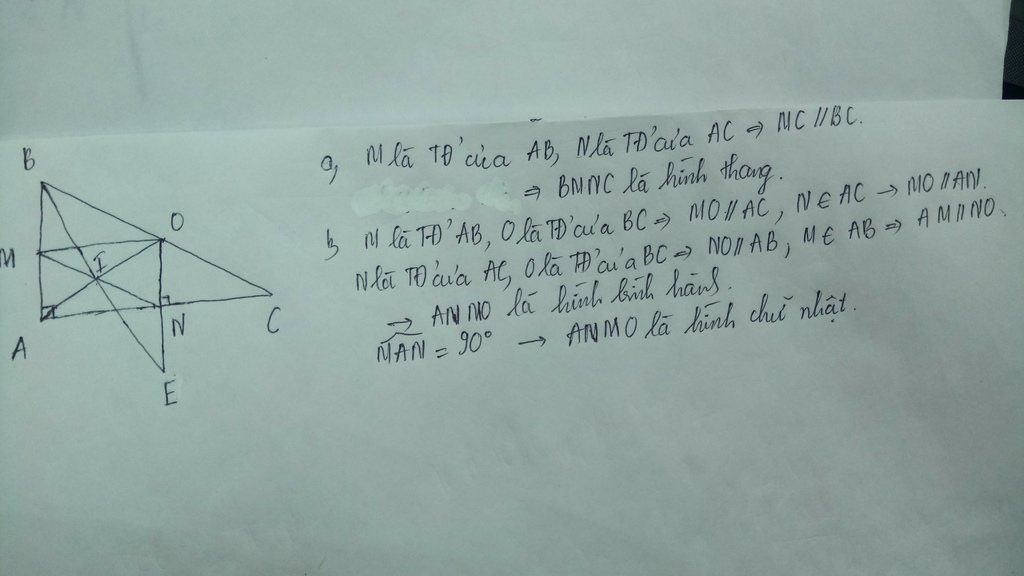 B
O
M
I
A
N
C
E
a, M là TĐ' của AB, N là TĐ' của AC ⇒ MC // BC.
⇒ BMNC là hình thang.
b, M là TĐ' AB, O là TĐ' của BC ⇒ MO // AC, N ∈ AC → MO // AN.
N là TĐ' của AC, O là TĐ' của BC ⇒ NO // AB, M ∈ AB ⇒ AM // NO.
⇒ ANMO là hình bình hành.
MAN = 90° → ANMO là hình chữ nhật.